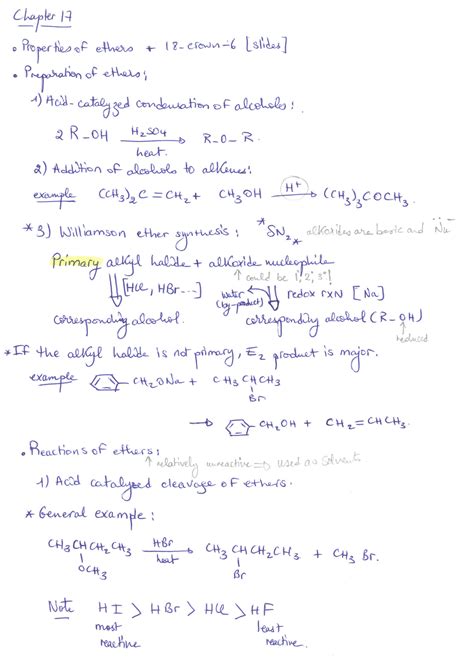 Chapter 17
• Properties of ethers + 18-crown-6 [slides]
• Preparation of ethers:
1) Acid-catalyzed condensation of alcohols:
2 R-OH H₂SO₄ → heat. R-O-R.
2) Addition of alcohols to alkenes:
example (CH₃)₂C=CH₂ + CH₃OH H⁺ → (CH₃)₃COCH₃.
*3) Williamson ether synthesis: *SN₂* alkoxides are basic and Nu⁻
Primary alkyl halide + alkoxide nucleophile
↑ could be 1°, 2°, 3°!
⇓ [HCl, HBr...] Water (by-product) ⇓ redox rxN [Na]
corresponding alcohol. corresponding alcohol (R-OH)
↑ reduced
*If the alkyl halide is not primary, E₂ product is major.
example CH₂ONa + CH₃CHCH₃
Br
→ CH₂OH + CH₂=CHCH₃.
• Reactions of ethers:
↑ relatively unreactive => used as solvents
1) Acid catalyzed cleavage of ethers.
* General example:
CH₃CHCH₂CH₃ HBr → heat CH₃CHCH₂CH₃ + CH₃Br.
OCH₃ Br
Note HI > HBr > HCl > HF
most least
reactive reactive.